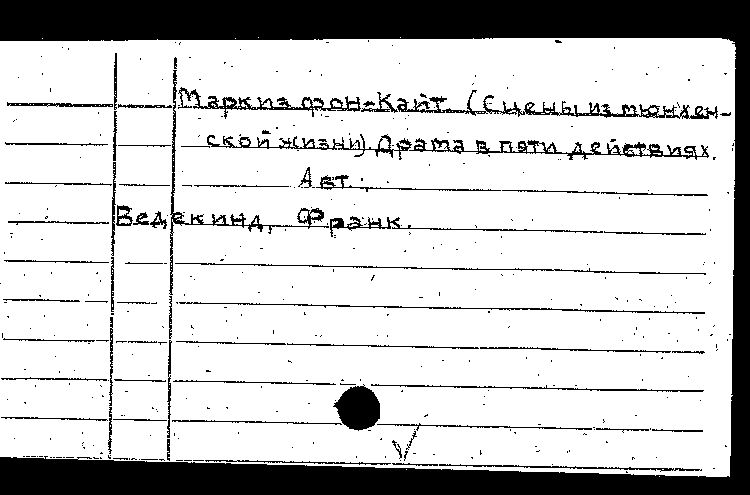 Маркиз фон-Кайт. (Сцены из мюнхен-
ской жизни). Драма в пяти действиях.
Авт.:
Ведекинд, Франк.